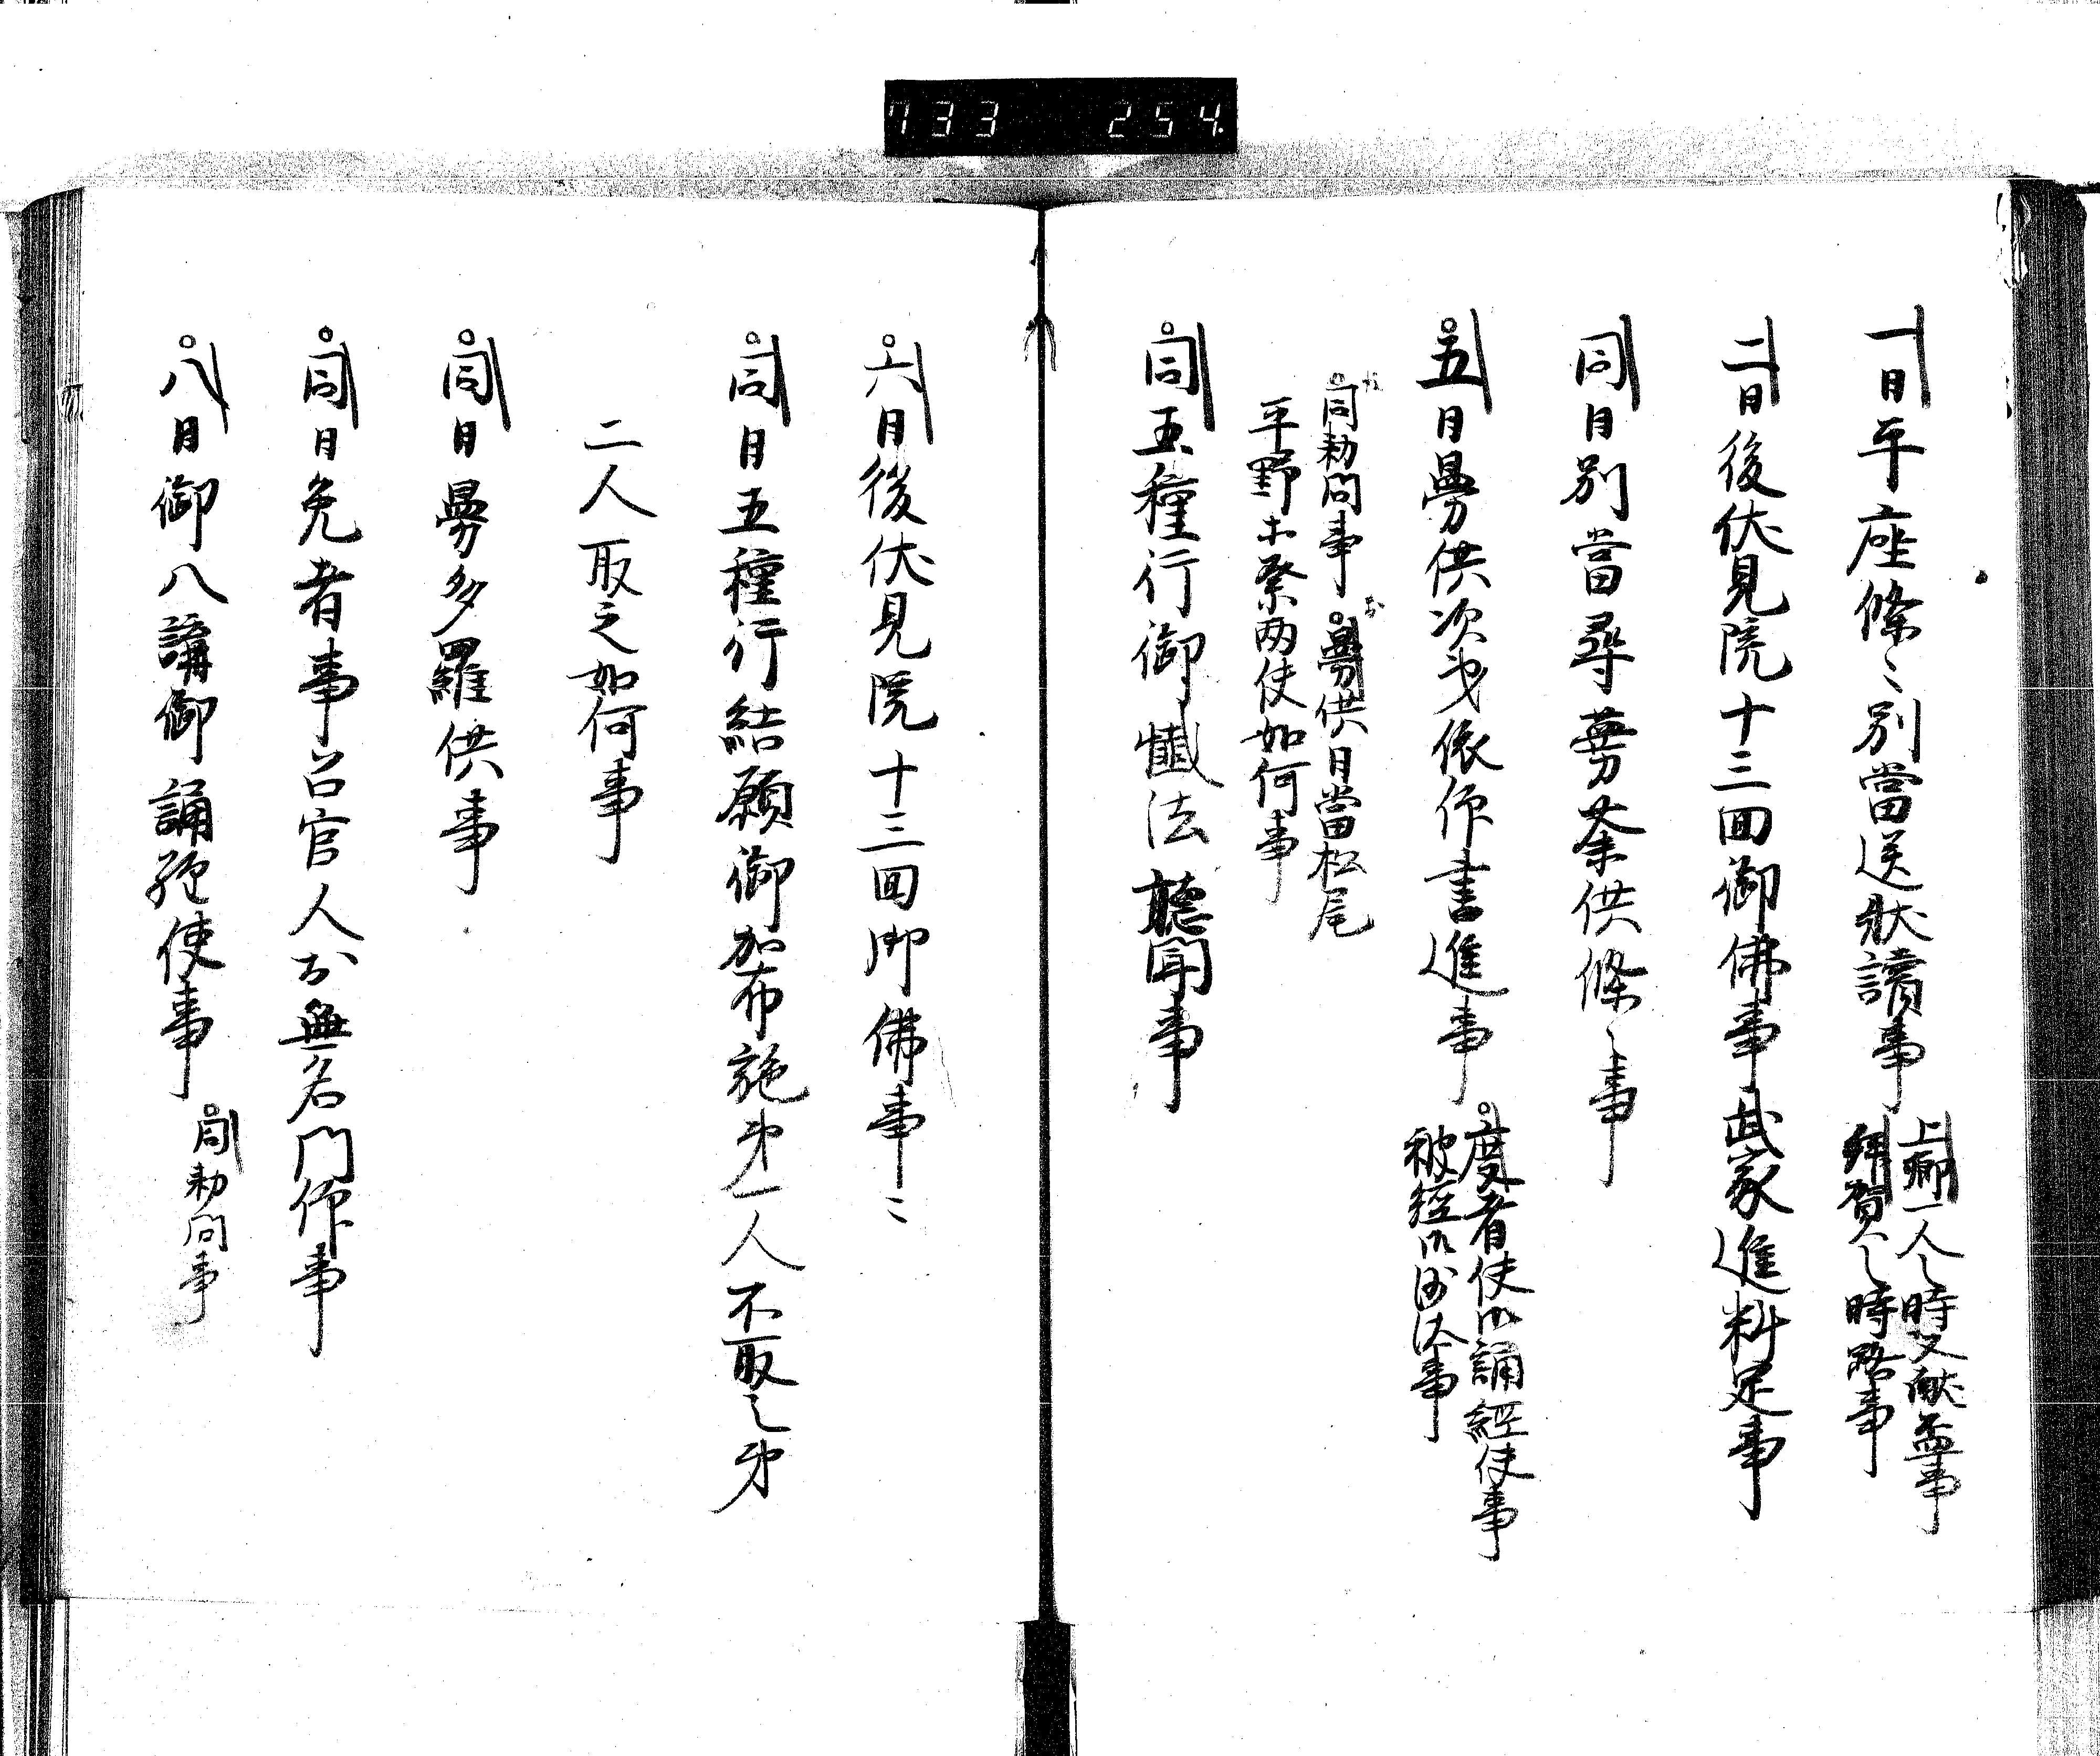 733 254
一日平座條々別當送状讀事
上卿一人之時又献盃事
拝賀之時略事
二日後伏見院十三回御佛事武家進料足事
同日別當尋曼荼供條々事
五日曼供次第依仰書進事
度者使以誦經使事
被經御沙汰事
同勅問事 曼供日當松尾
平野未祭両使如何事
同五種行御懺法聴聞事
六日後伏見院十三回御佛事ーヽ
同日五種行結願御加布施第一人不取之第
二人取之如何事
同日曼多羅供事
同日免者事召官人於無名門仰事
八日御八講御誦経使事
同勅問事